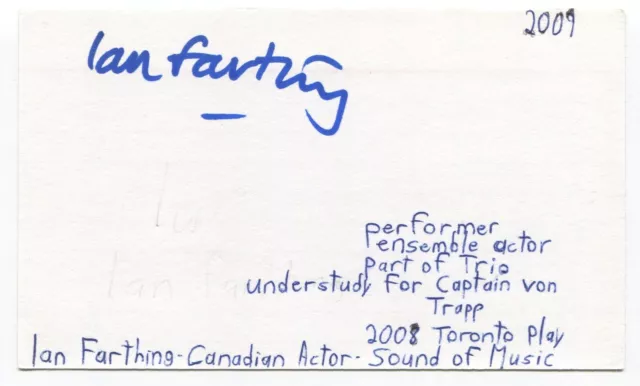 2009
Ian Farthing
performer
ensemble actor
part of Trio
understudy for Captain von
Trapp
2008 Toronto Play
Ian Farthing-Canadian Actor- Sound of Music
Ian